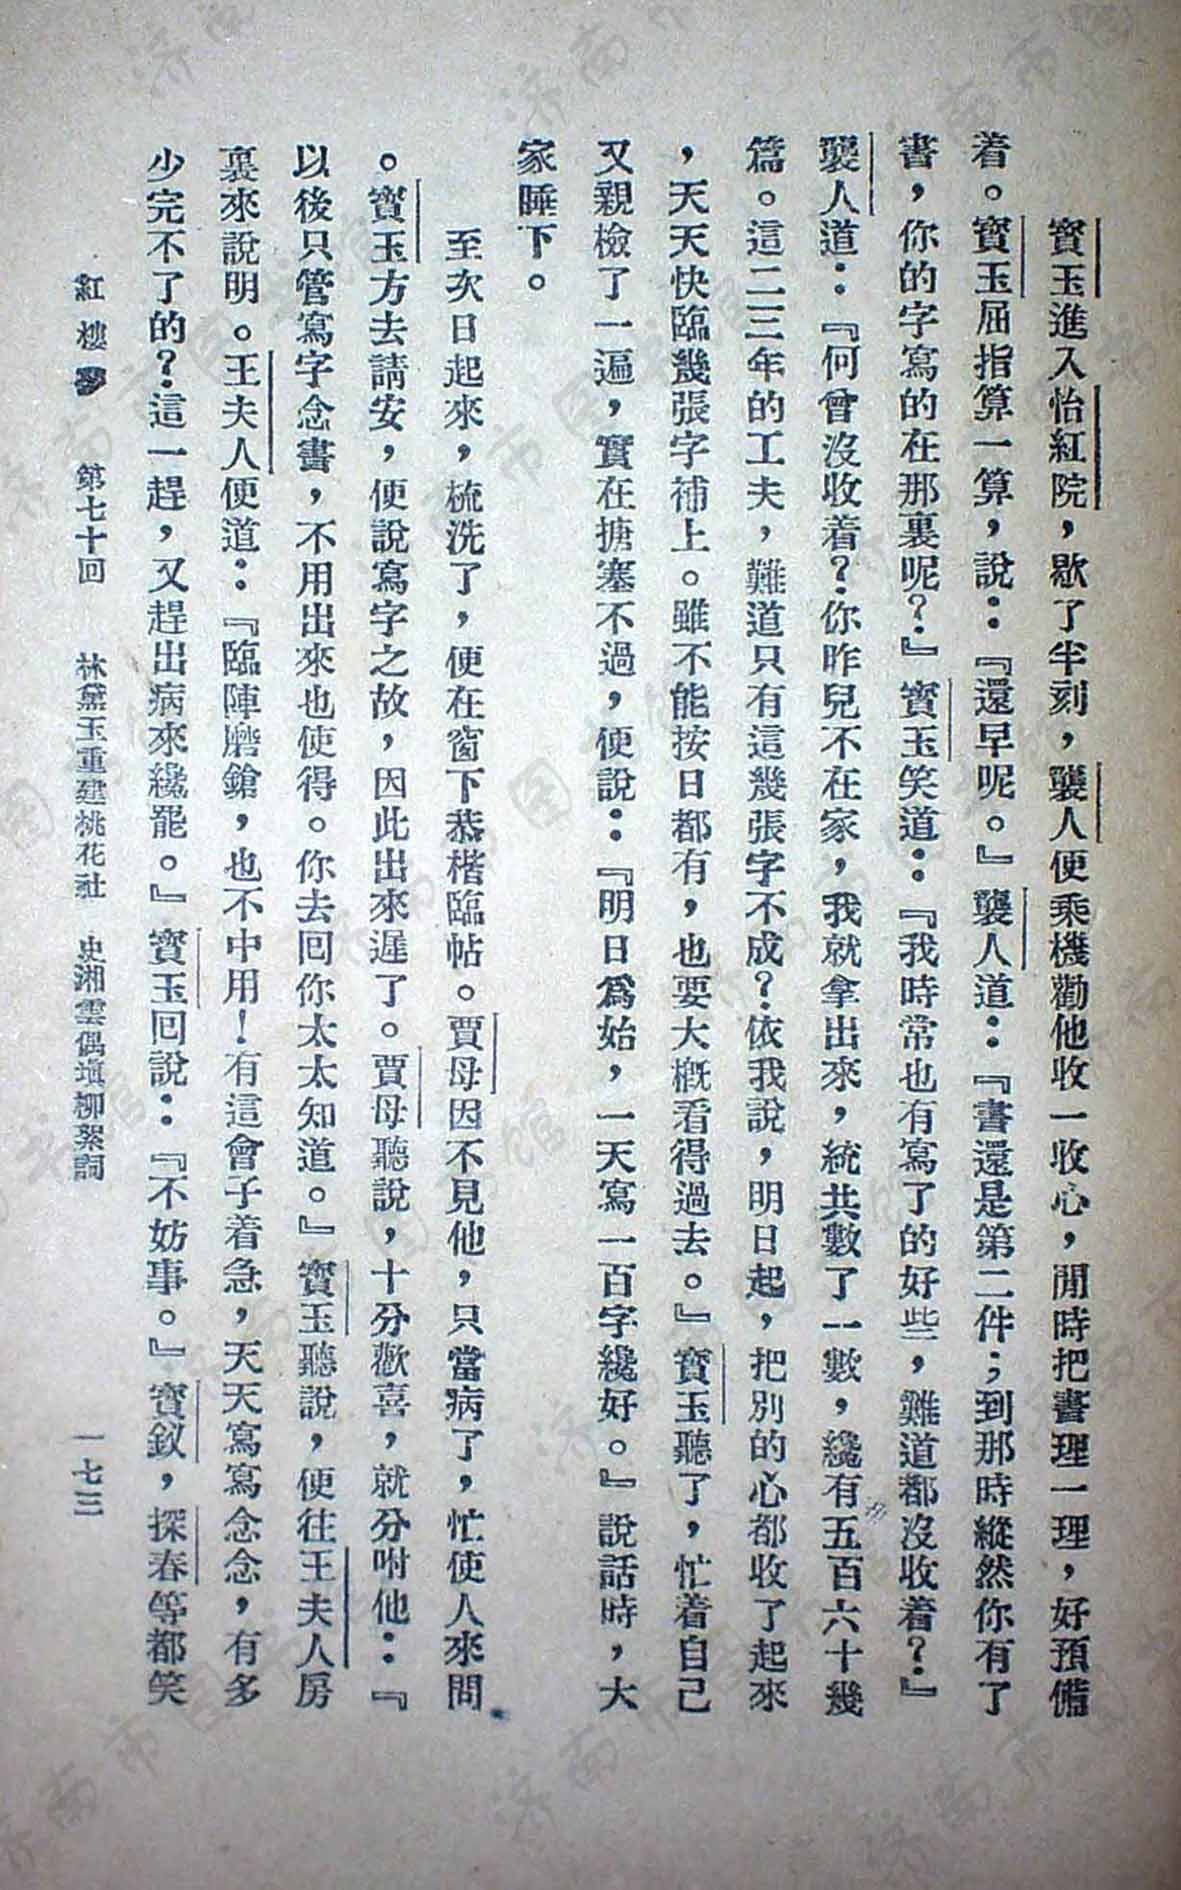 寶玉進入怡紅院，歇了半刻，襲人便乘機勸他收一收心，閒時把書理一理，好預備
着。寶玉屈指算一算，說：『還早呢。』襲人道：『書還是第二件；到那時縱然你有了
書，你的字寫的在那裏呢？』寶玉笑道：『我時常也有寫了的好些，難道都沒收着？』
襲人道：『何曾沒收着？你昨兒不在家，我就拿出來，統共數了一數，纔有五百六十幾
篇。這二三年的工夫，難道只有這幾張字不成？依我說，明日起，把別的心都收了起來
，天天快臨幾張字補上。雖不能按日都有，也要大概看得過去。』寶玉聽了，忙着自己
又親檢了一遍，實在搪塞不過，便說：『明日爲始，一天寫一百字纔好。』說話時，大
家睡下。
至次日起來，梳洗了，便在窗下恭楷臨帖。賈母因不見他，只當病了，忙使人來問
。寶玉方去請安，便說寫字之故，因此出來遲了。賈母聽說，十分歡喜，就分咐他：『
以後只管寫字念書，不用出來也使得。你去回你太太知道。』寶玉聽說，便往王夫人房
裏來說明。王夫人便道：『臨陣磨鎗，也不中用！有這會子着急，天天寫寫念念，有多
少完不了的？這一趕，又趕出病來纔罷。』寶玉回說：『不妨事。』寶釵，探春等都笑
紅樓夢 第七十回 林黛玉重建桃花社 史湘雲偶塡柳絮詞 一七三
济南市图书馆